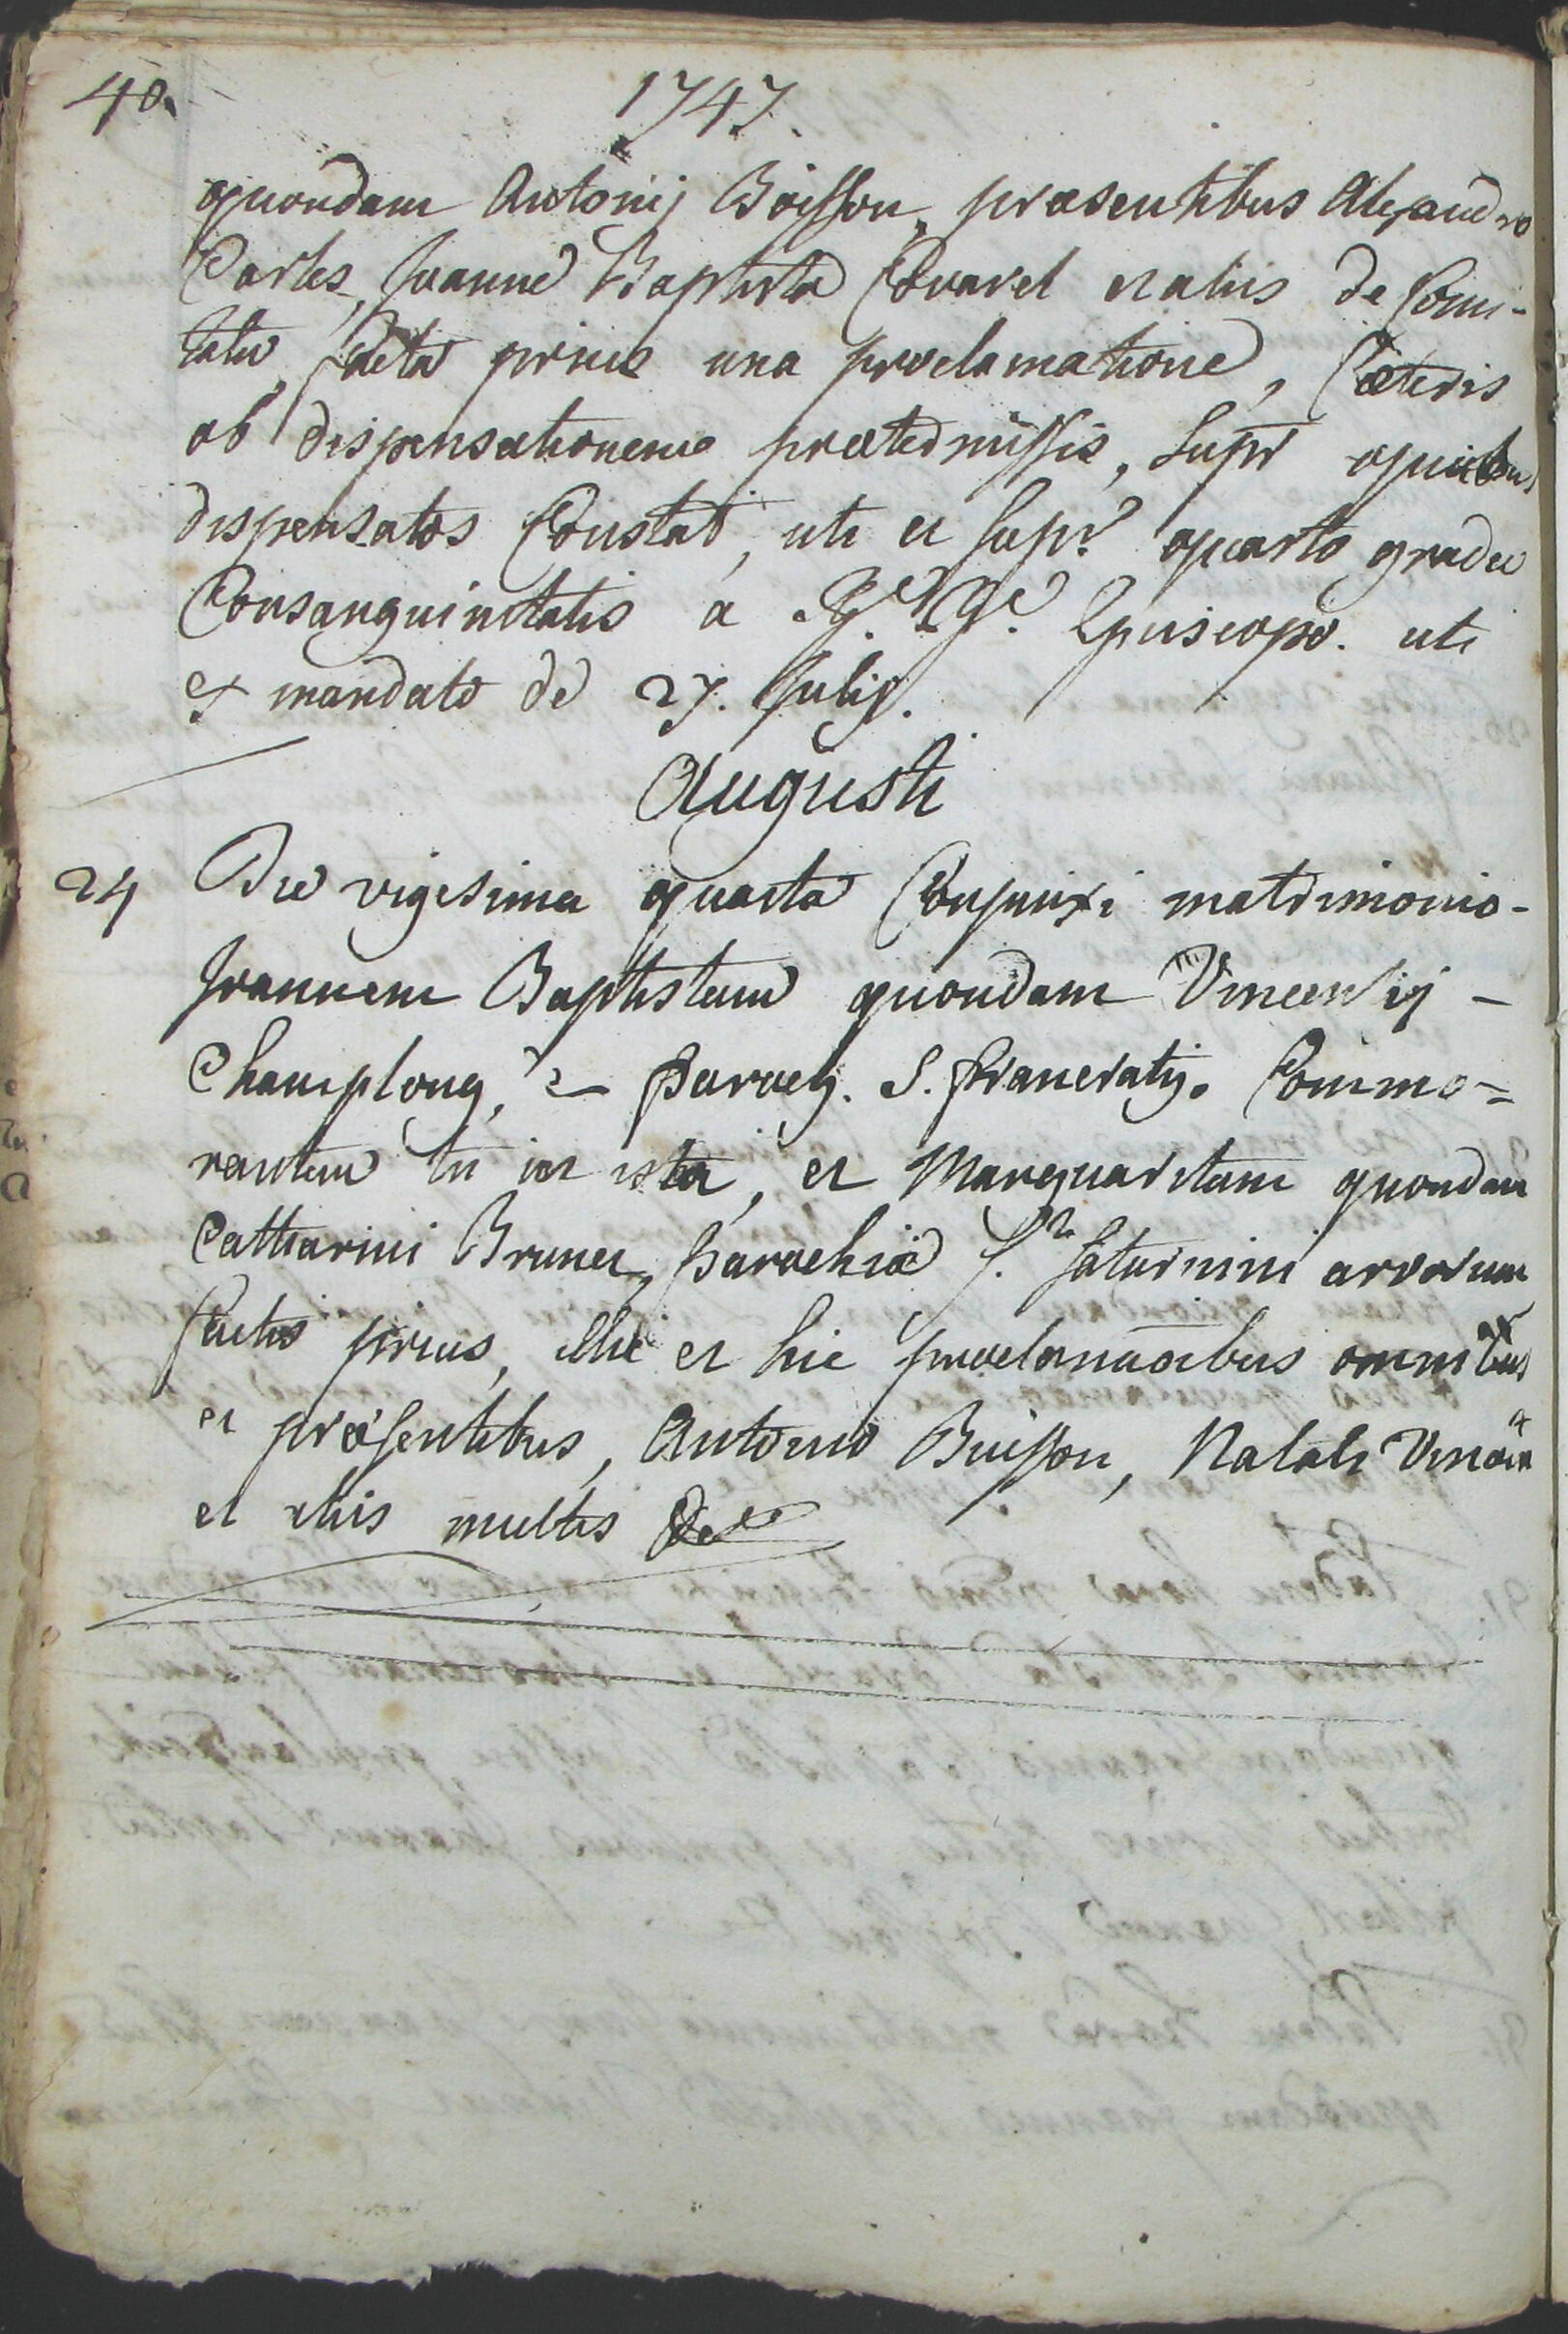 40.
1747.
quondam Antonij Boisson, præsentibus Alexandro
Carles, Joanne Baptista Covarel et aliis de Comi-
tatu, facta prius una proclamatione, Cæteris
ob dispensationem prætermissis, supr quibus
dispensatos Constat, uti et supr quarto gradu
Consanguinitatis a Episcopo. uti
ex mandato de 27. Julij.
Augusti
24 Die vigesima quarta Conjunxi matrimonio-
Joannem Baptistam quondam Vincentij -
Champlong, Paroch. S. Pancratij. Commo=
rantem in ista, et Marguaritam quondam
Catharini Brunet, Parochiæ S. Saturnini arvorum
factis prius, illic et hic proclamaõibus omnibus
et præsentibus, Antonio Buisson, Natali
et aliis multis